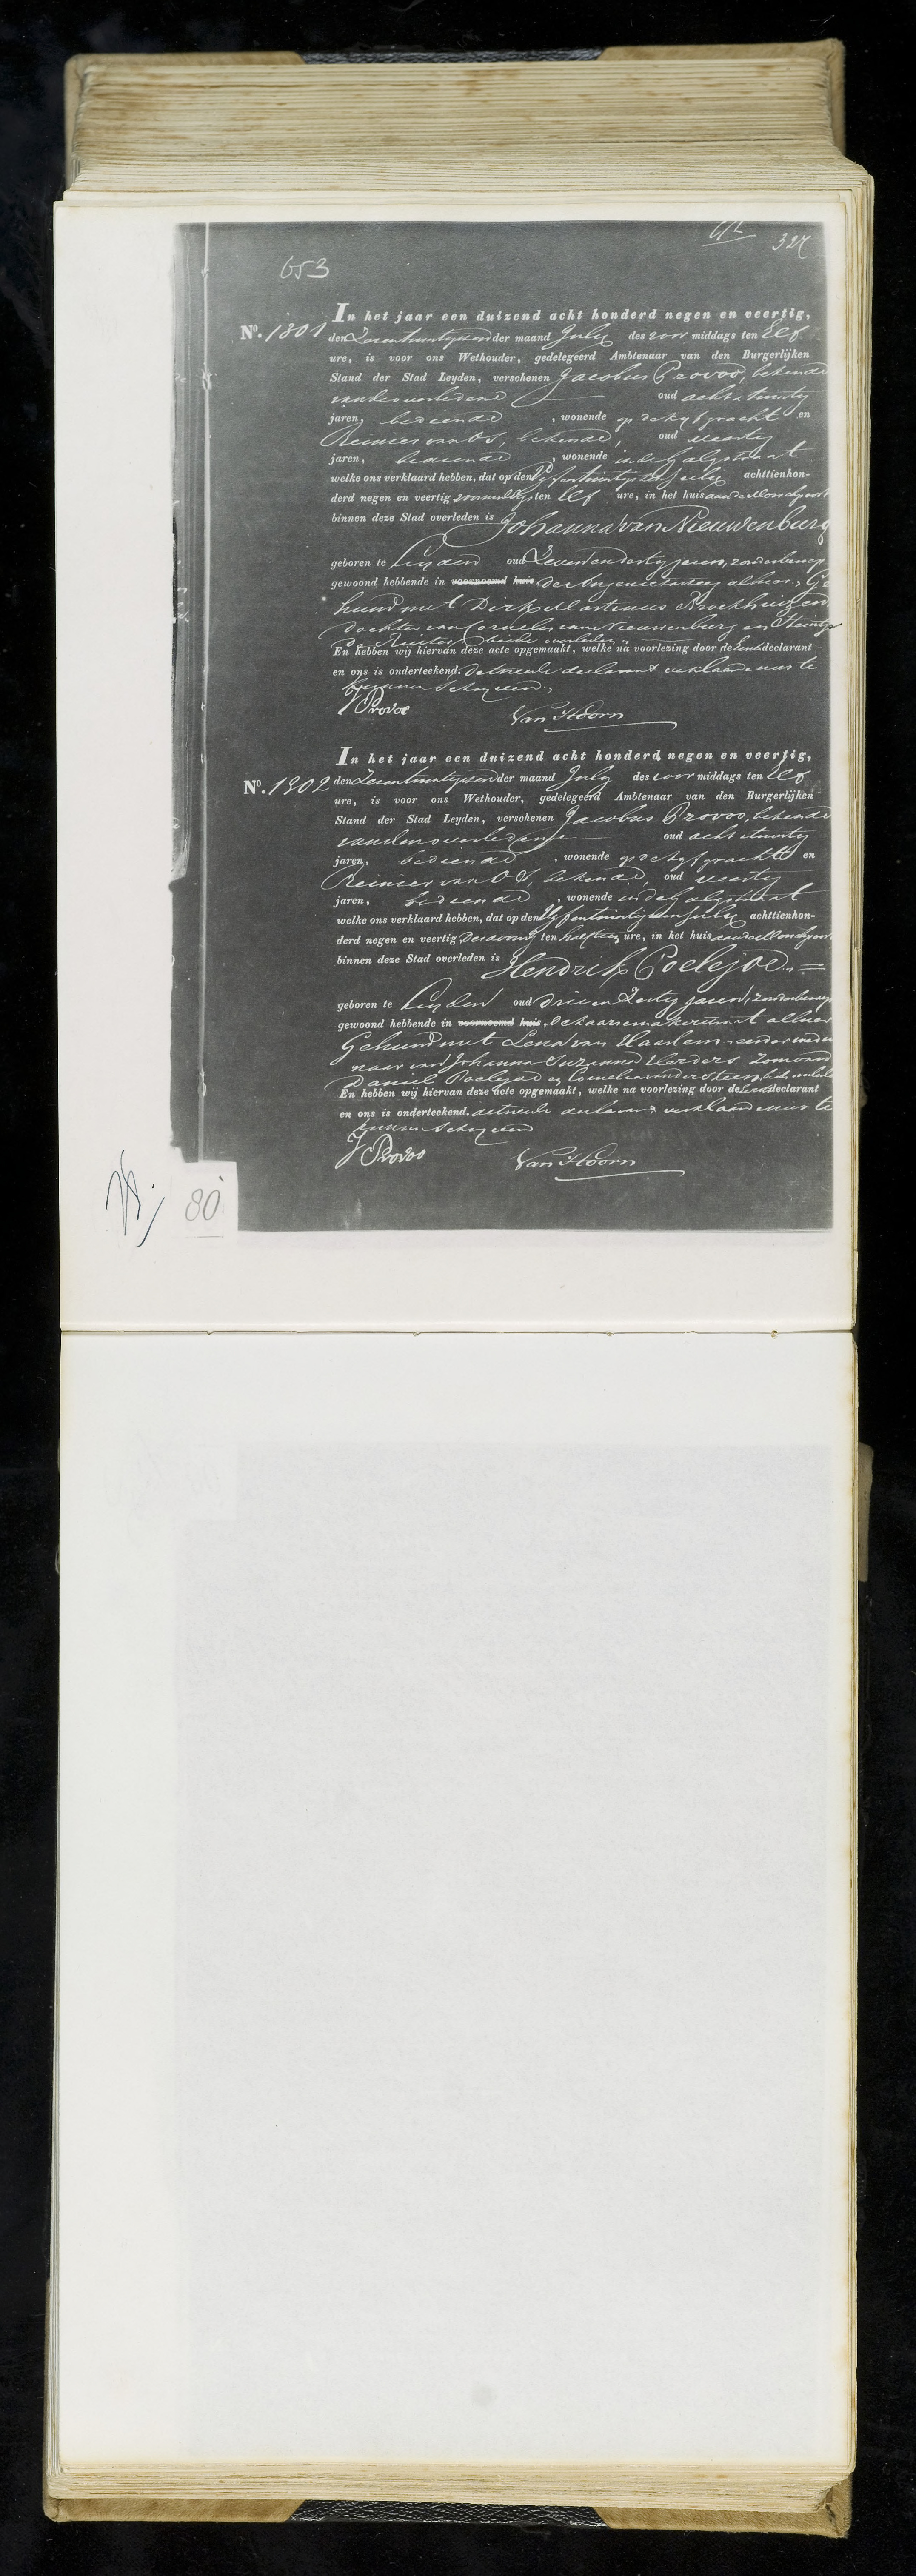 653
327
In het jaar een duizend acht honderd negen en veertig,
N°. 1301 den Zevenentwintigsten der maand July des voor middags ten Elf
ure, is voor ons Wethouder, gedelegeerd Ambtenaar van den Burgerlijken
Stand der Stad Leyden, verschenen Jacobus Provoo, bekende
van de overledene oud acht en twintig
jaren, bediende, wonende op de gracht en
Reinier van Os, bekende, oud veertig
jaren, bediende, wonende in de Galgstraat
welke ons verklaard hebben, dat op den Vyfentwintigsten July achttienhon-
derd negen en veertig ten Elf ure, in het huis aan de
binnen deze Stad overleden is Johanna van Nieuwenburg
geboren te Leyden oud Zevenendertig jaren, zonder beroep
gewoond hebbende in voornoemd huis, de alhier, Ge
huwd met Dirk Martinus Broekhuizen
dochter van Cornelis van Nieuwenburg en Steintje
de Ruiter, beide overleden
En hebben wij hiervan deze acte opgemaakt, welke na voorlezing door de Eerste declarant
en ons is onderteekend. de tweede declarant verklaarde niet te
kunnen schryven.
J Provoo
Van Hoorn
In het jaar een duizend acht honderd negen en veertig,
N°. 1302 den Zevenentwintigsten der maand July des voor middags ten Elf
ure, is voor ons Wethouder, gedelegeerd Ambtenaar van den Burgerlijken
Stand der Stad Leyden, verschenen Jacobus Provoo, bekende
van den overledene oud acht en twintig
jaren, bediende, wonende op de gracht en
Reinier van Os, bekende, oud veertig
jaren, bediende, wonende in de Galgstraat
welke ons verklaard hebben, dat op den Vyfentwintigsten July achttienhon-
derd negen en veertig, des avonds ten half ure, in het huis aan de
binnen deze Stad overleden is Hendrik Poelejoe
geboren te Leyden oud drie en Zestig jaren, zonder beroep
gewoond hebbende in voornoemd huis, de alhier
Gehuwd met Lena van Haarlem, eerder wedu
naar van Johanna Suzanna Herders, Zoon van
Daniel Poelejoe en Cornelia van der Steen, beide overleden
En hebben wij hiervan deze acte opgemaakt, welke na voorlezing door de Eerste declarant
en ons is onderteekend. de tweede declarant verklaarde niet te
kunnen schryven
J Provoo
Van Hoorn
80